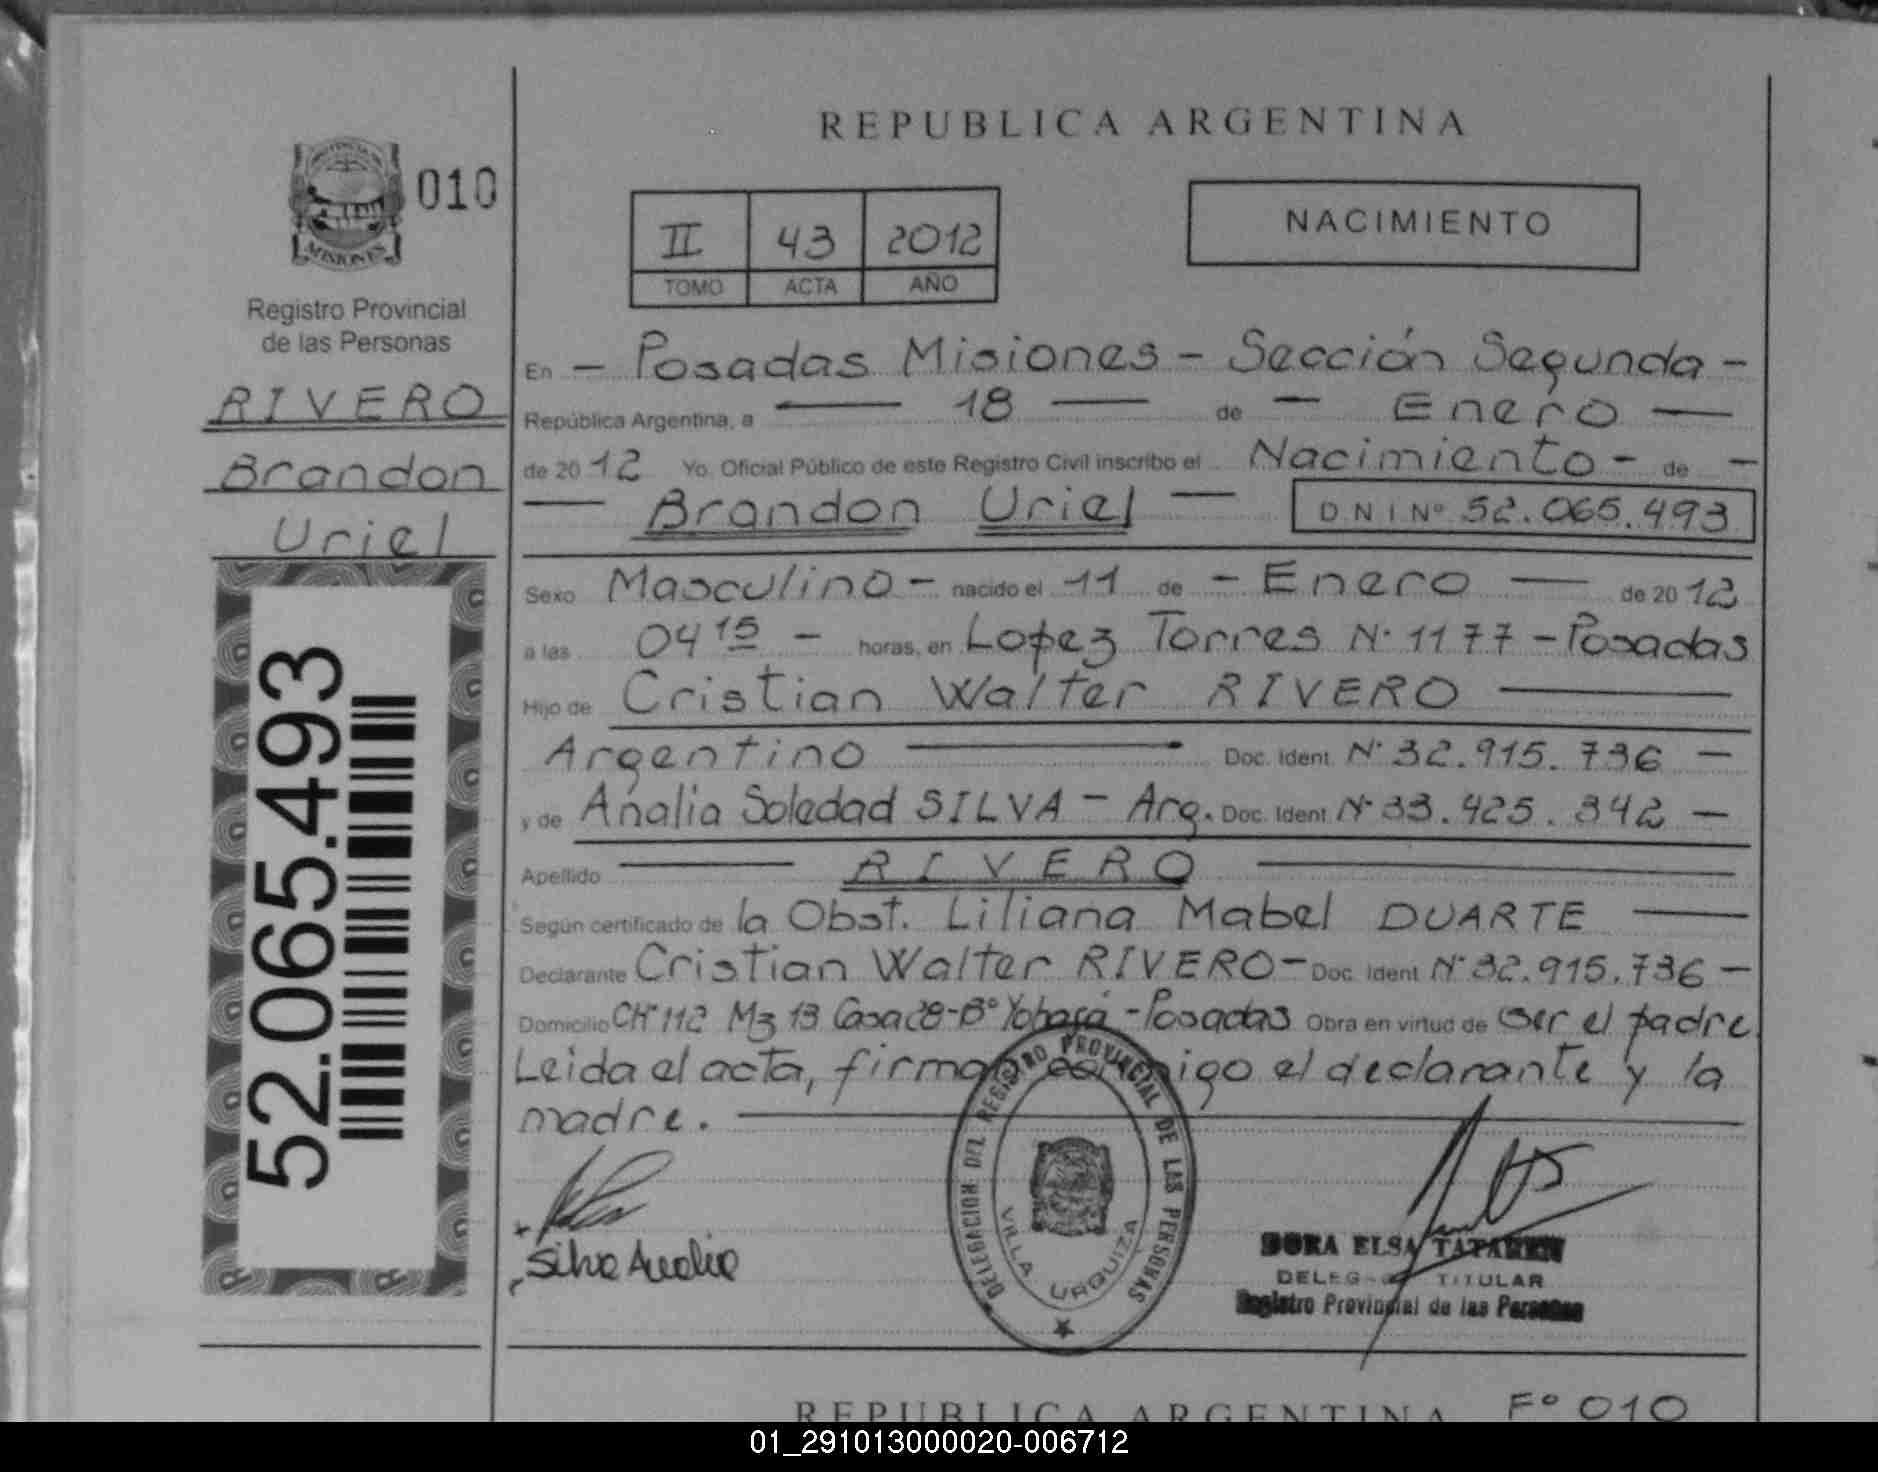 010
MISIONES
Registro Provincial
de las Personas
RIVERO
Brandon
Uriel
52.065.493
REPUBLICA ARGENTINA
II 43 2012
TOMO ACTA AÑO
NACIMIENTO
En - Posadas Misiones - Sección Segunda -
República Argentina, a — 18 — de - Enero —
de 2012 Yo. Oficial Público de este Registro Civil inscribo el Nacimiento - de -
— Brandon Uriel — DNI Nº 52.065.493
Sexo Masculino - nacido el 11 de - Enero — de 2012
a las 04 15 - horas, en Lopez Torres N° 1177 - Posadas
Hijo de Cristian Walter RIVERO —
Argentino — Doc. Ident. N° 32.915.736 —
y de Analia Soledad SILVA - Arg. Doc. Ident. N° 33.425.342 —
Apellido — RIVERO —
Según certificado de la Obst. Liliana Mabel DUARTE —
Declarante Cristian Walter RIVERO - Doc. Ident. N° 32.915.736 —
Domicilio CH° 112 Mz 13 Casa 28 - B° - Posadas Obra en virtud de ser el padre
Leida el acta, firman conmigo el declarante y la
madre. —
Silva Analia
DELEGACION DEL REGISTRO PROVINCIAL DE LAS PERSONAS
VILLA URQUIZA
DORA ELSA
DELEGADA TITULAR
Registro Provincial de las Personas
REPUBLICA ARGENTINA Fº 010
01_291013000020-006712